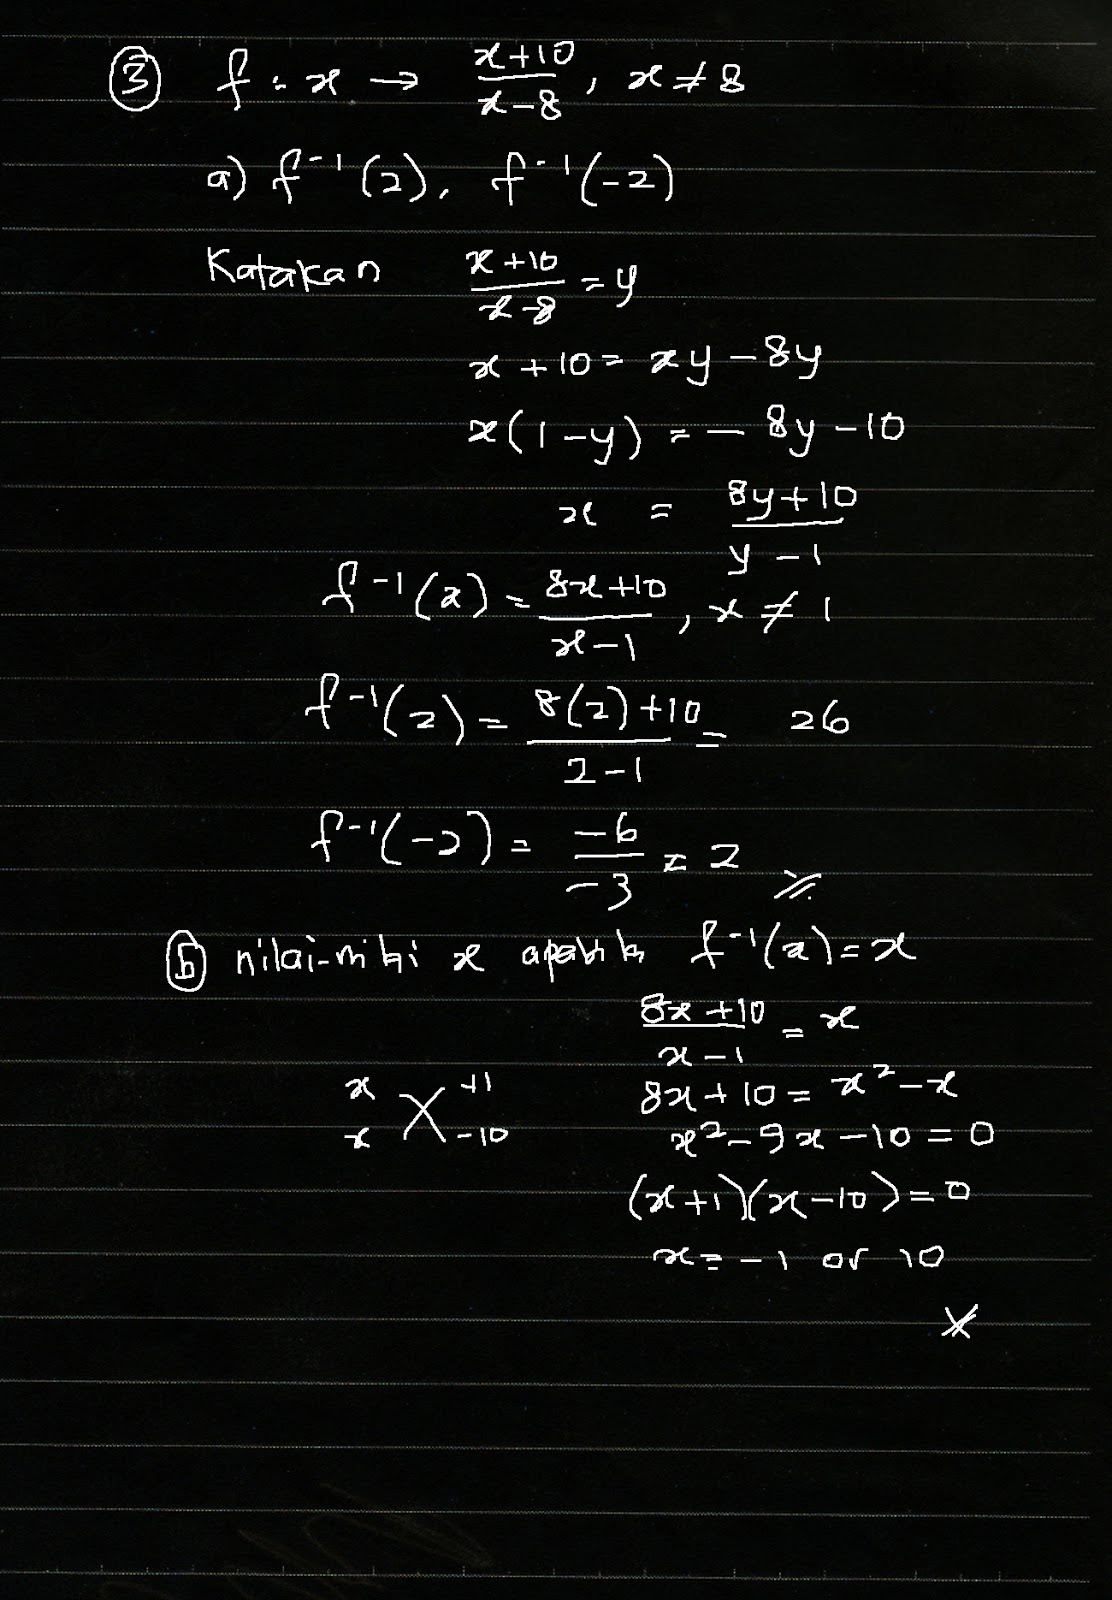 ③ f : x → (x+10)/(x-8), x ≠ 8
a) f⁻¹(2), f⁻¹(-2)
Katakan (x+10)/(x-8) = y
x + 10 = xy - 8y
x(1-y) = - 8y - 10
x = (8y+10)/(y-1)
f⁻¹(x) = (8x+10)/(x-1), x ≠ 1
f⁻¹(2) = (8(2)+10)/(2-1) = 26
f⁻¹(-2) = (-6)/(-3) = 2
ⓑ nilai-nilai x apabila f⁻¹(x) = x
(8x+10)/(x-1) = x
x +1
8x + 10 = x² - x
x -10
x² - 9x - 10 = 0
(x+1)(x-10) = 0
x = -1 or 10